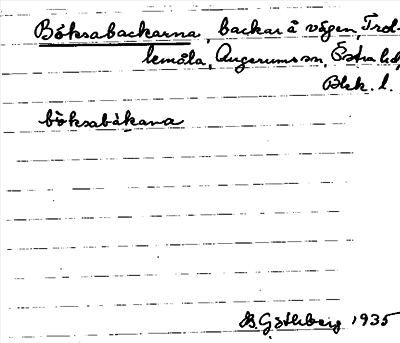 Böksabackarna, backar å vägen, Trol-
lemåla, Augerums sn, Östra hd,
Blek. l.
böksabàkana
B. Göthberg 1935